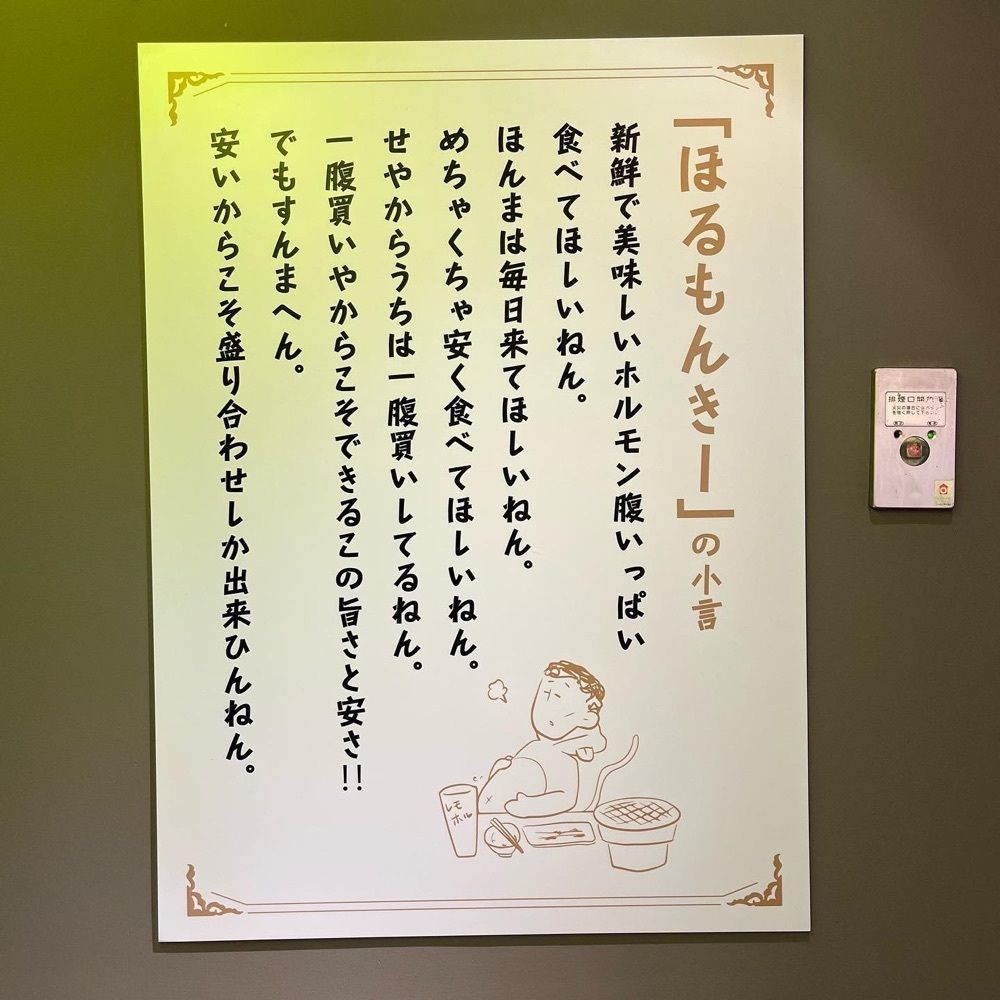 「ほるもんきー」の小言
新鮮で美味しいホルモン腹いっぱい
食べてほしいねん。
ほんまは毎日来てほしいねん。
めちゃくちゃ安く食べてほしいねん。
せやからうちは一腹買いしてるねん。
一腹買いやからこそできるこの旨さと安さ!!
でもすんまへん。
安いからこそ盛り合わせしか出来ひんねん。
レモ
ホル
排煙口開放